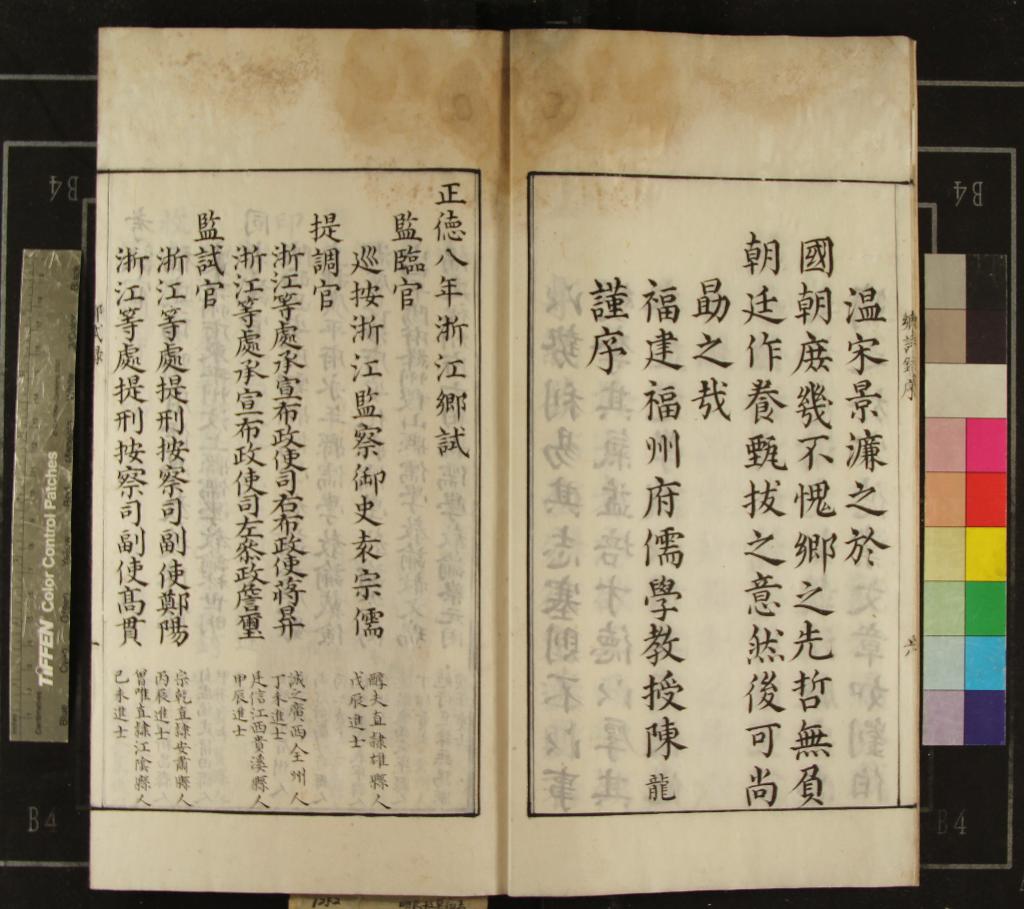 溫宋景濂之於
國朝庶幾不愧鄉之先哲無負
朝廷作養甄拔之意然後可尚
勗之哉
福建福州府儒學教授陳龍
謹序
正德八年浙江鄉試
監臨官
巡按浙江監察御史袁宗儒
醇夫直隸雄縣人
戊辰進士
提調官
浙江等處承宣布政使司右布政使蔣昇
誠之廣西全州人
丁未進士
浙江等處承宣布政使司左叅政詹璽
是信江西貴溪縣人
甲辰進士
監試官
浙江等處提刑按察司副使鄭陽
宗乾直隸安肅縣人
丙辰進士
浙江等處提刑按察司副使髙貫
曾唯直隸江陰縣人
己未進士
TIFFEN Color Control Patches
B4
B4
B4
B4